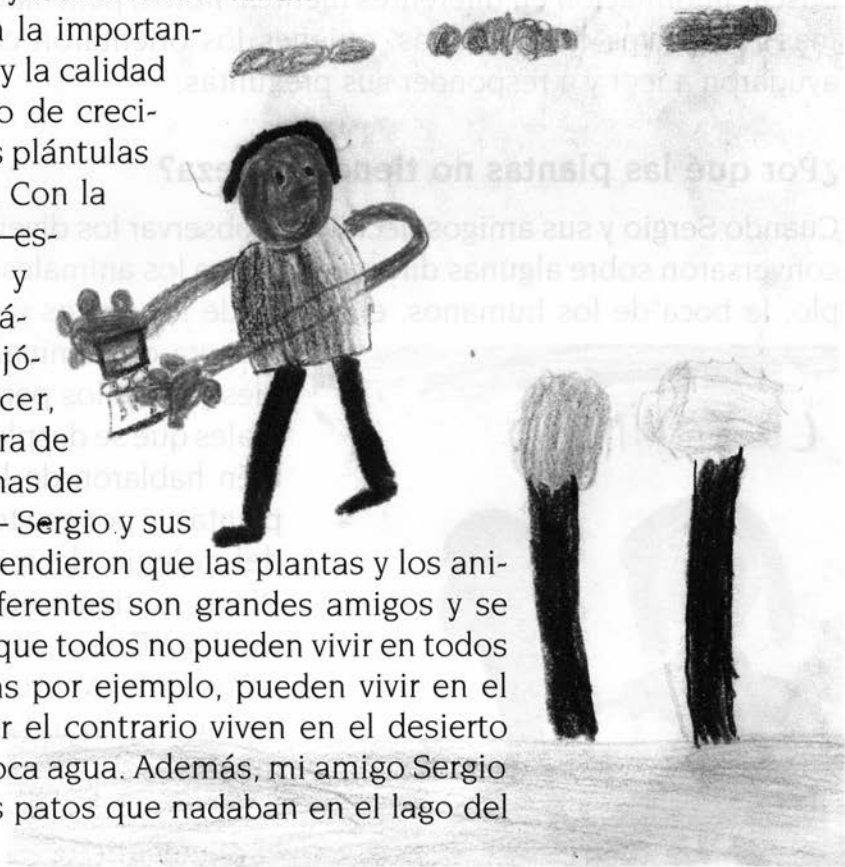 la importan-
y la calidad
o de creci-
s plántulas
Con la
—es-
y
á-
jó-
cer,
ra de
nas de
– Sergio y sus
endieron que las plantas y los ani-
ferentes son grandes amigos y se
que todos no pueden vivir en todos
as por ejemplo, pueden vivir en el
r el contrario viven en el desierto
oca agua. Además, mi amigo Sergio
s patos que nadaban en el lago del